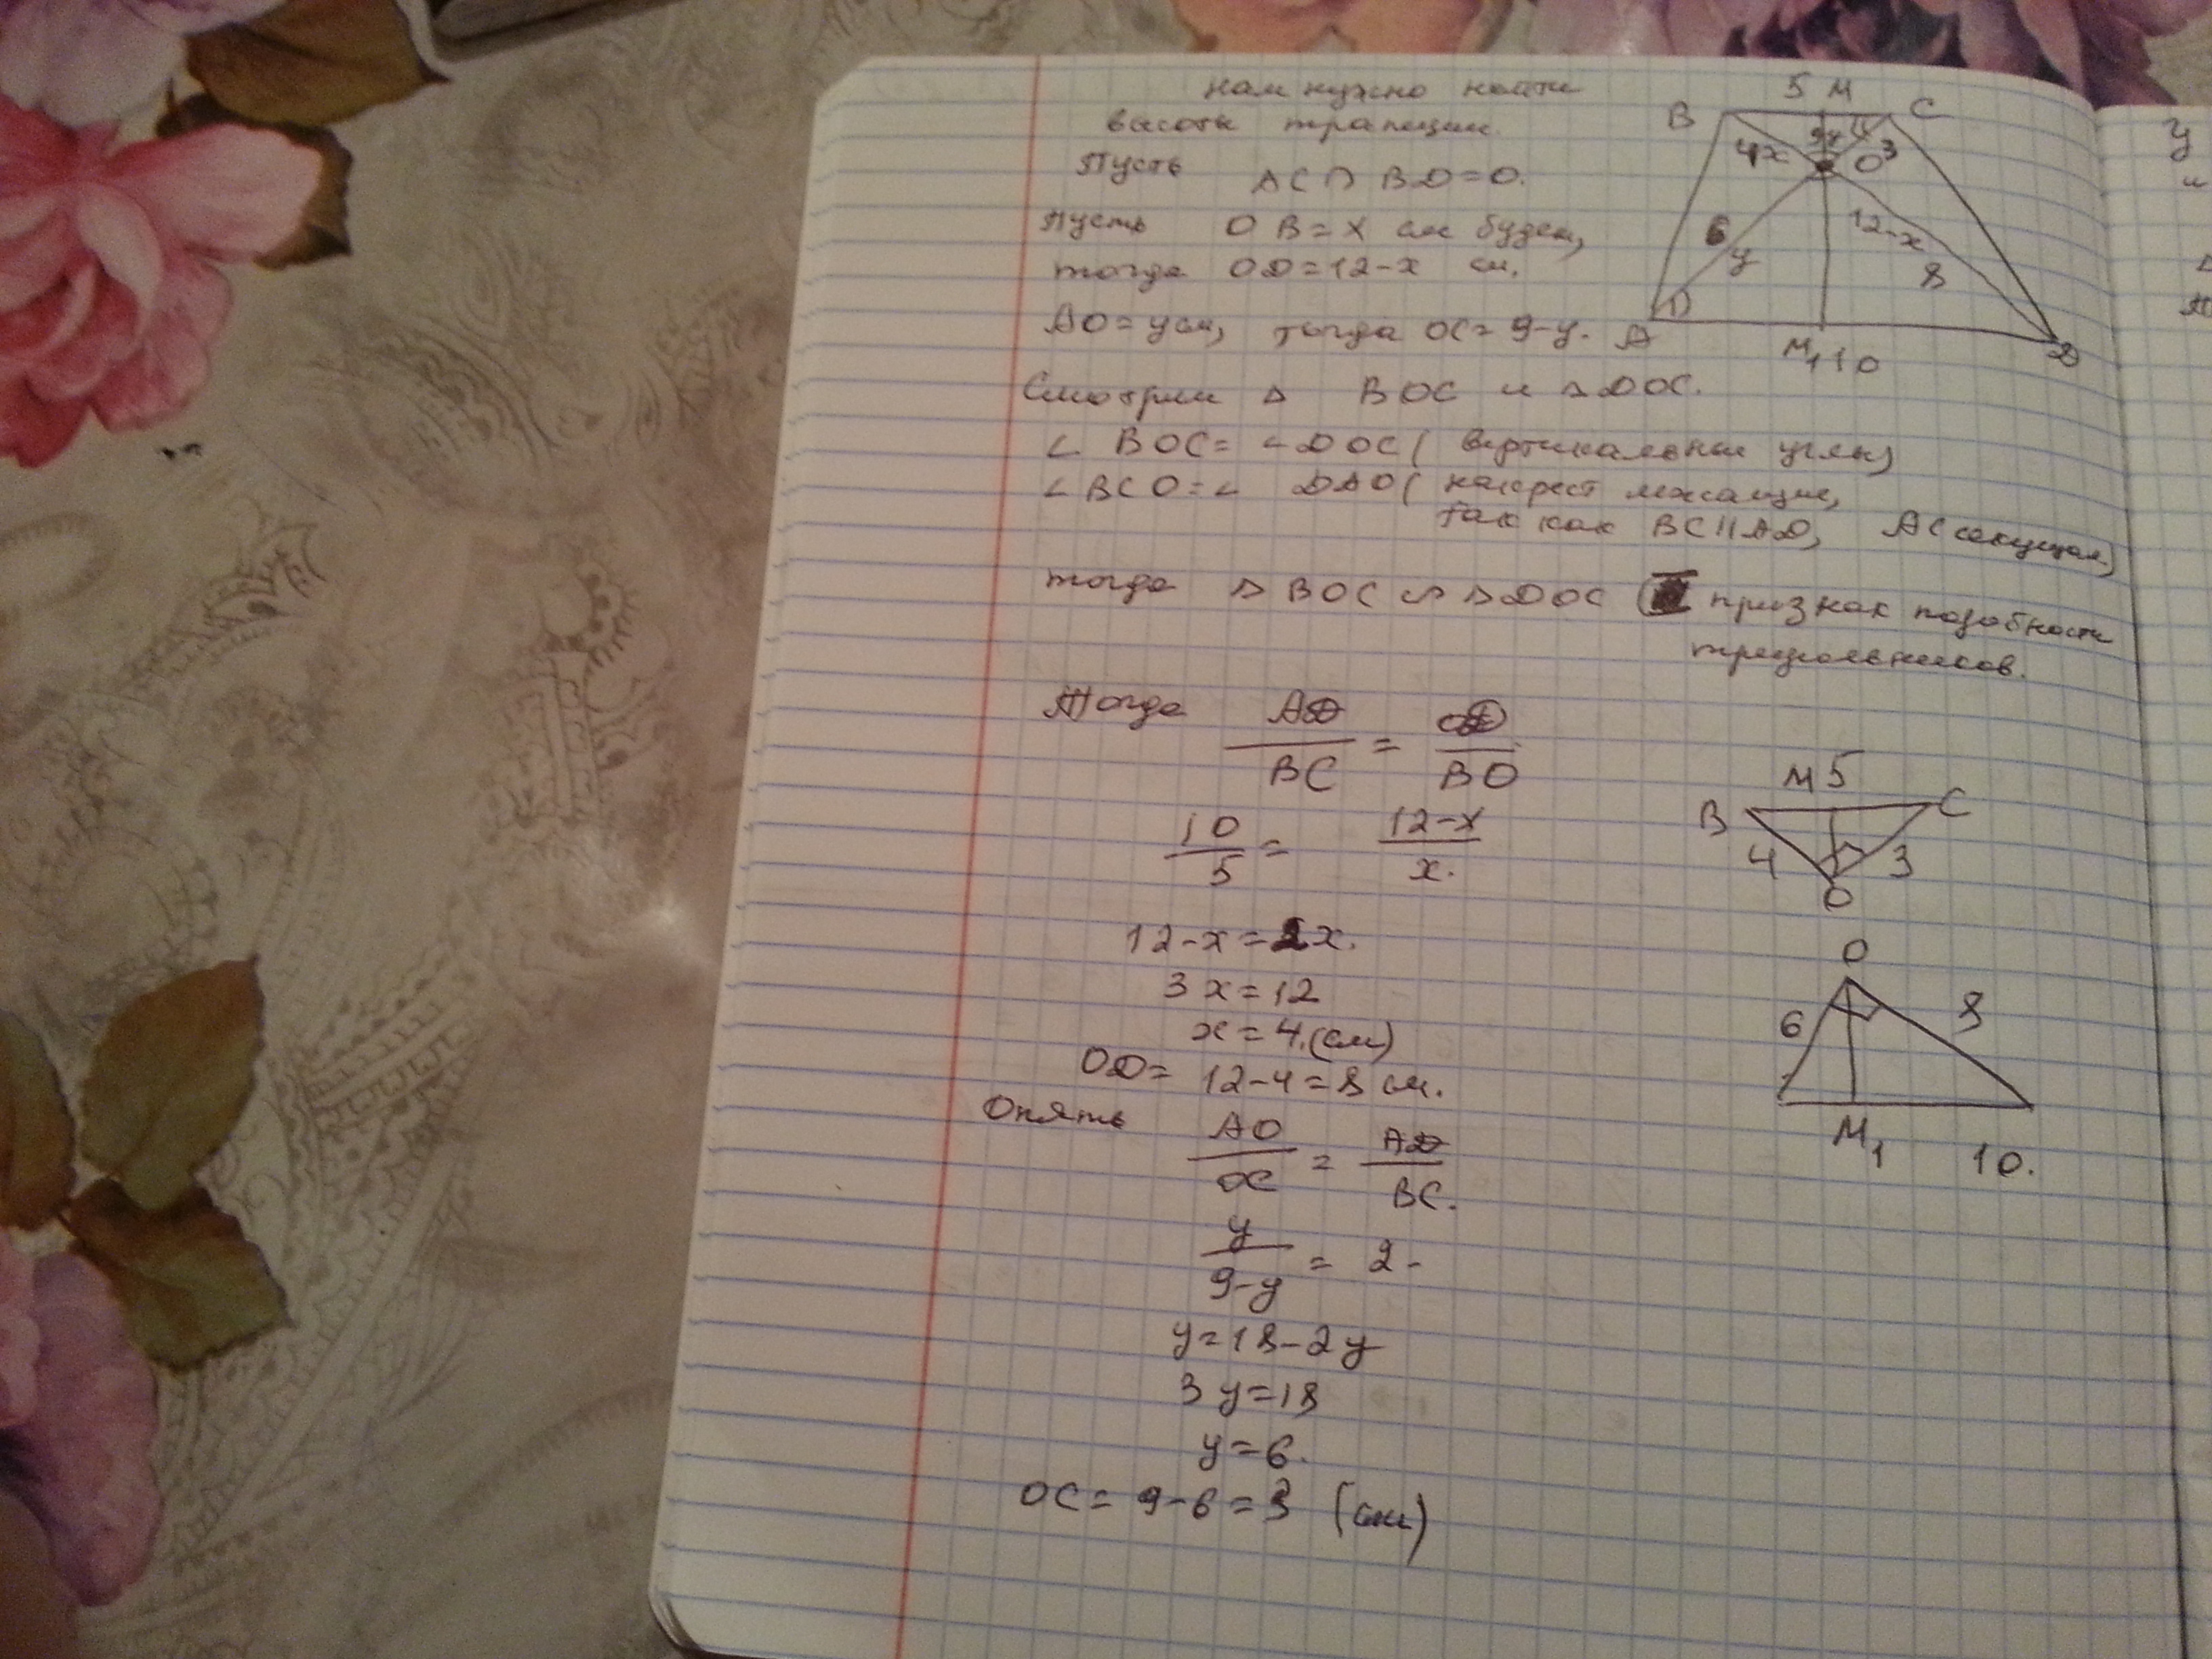 нам нужно найти
высоты трапеции.
Пусть AC ∩ BD = O.
Пусть OB = x см будем,
тогда OD = 12-x см.
AO = y см, тогда OC = 9-y.
Смотрим Δ BOC и Δ DOC.
∠ BOC = ∠ DOC ( вертикальные углы)
∠ BCO = ∠ DAO ( накрест лежащие,
так как BC || AD, AC секущая)
тогда Δ BOC ∽ Δ DOC ( признак подобности
треугольников.
Тогда AD/BC = OD/BO
10/5 = 12-x/x.
12-x=2x.
3x=12
x=4.(см)
OD= 12-4=8 см.
Опять AO/OC = AD/BC.
y/9-y = 2-
y=18-2y
3y=18
y=6.
OC= 9-6=3 (см)
5 M
B C
4x 9-y 3
O
6 12-x
y 8
A M1 10 D
M 5
B C
4 3
O
O
6 8
M1 10.
у
и
Δ